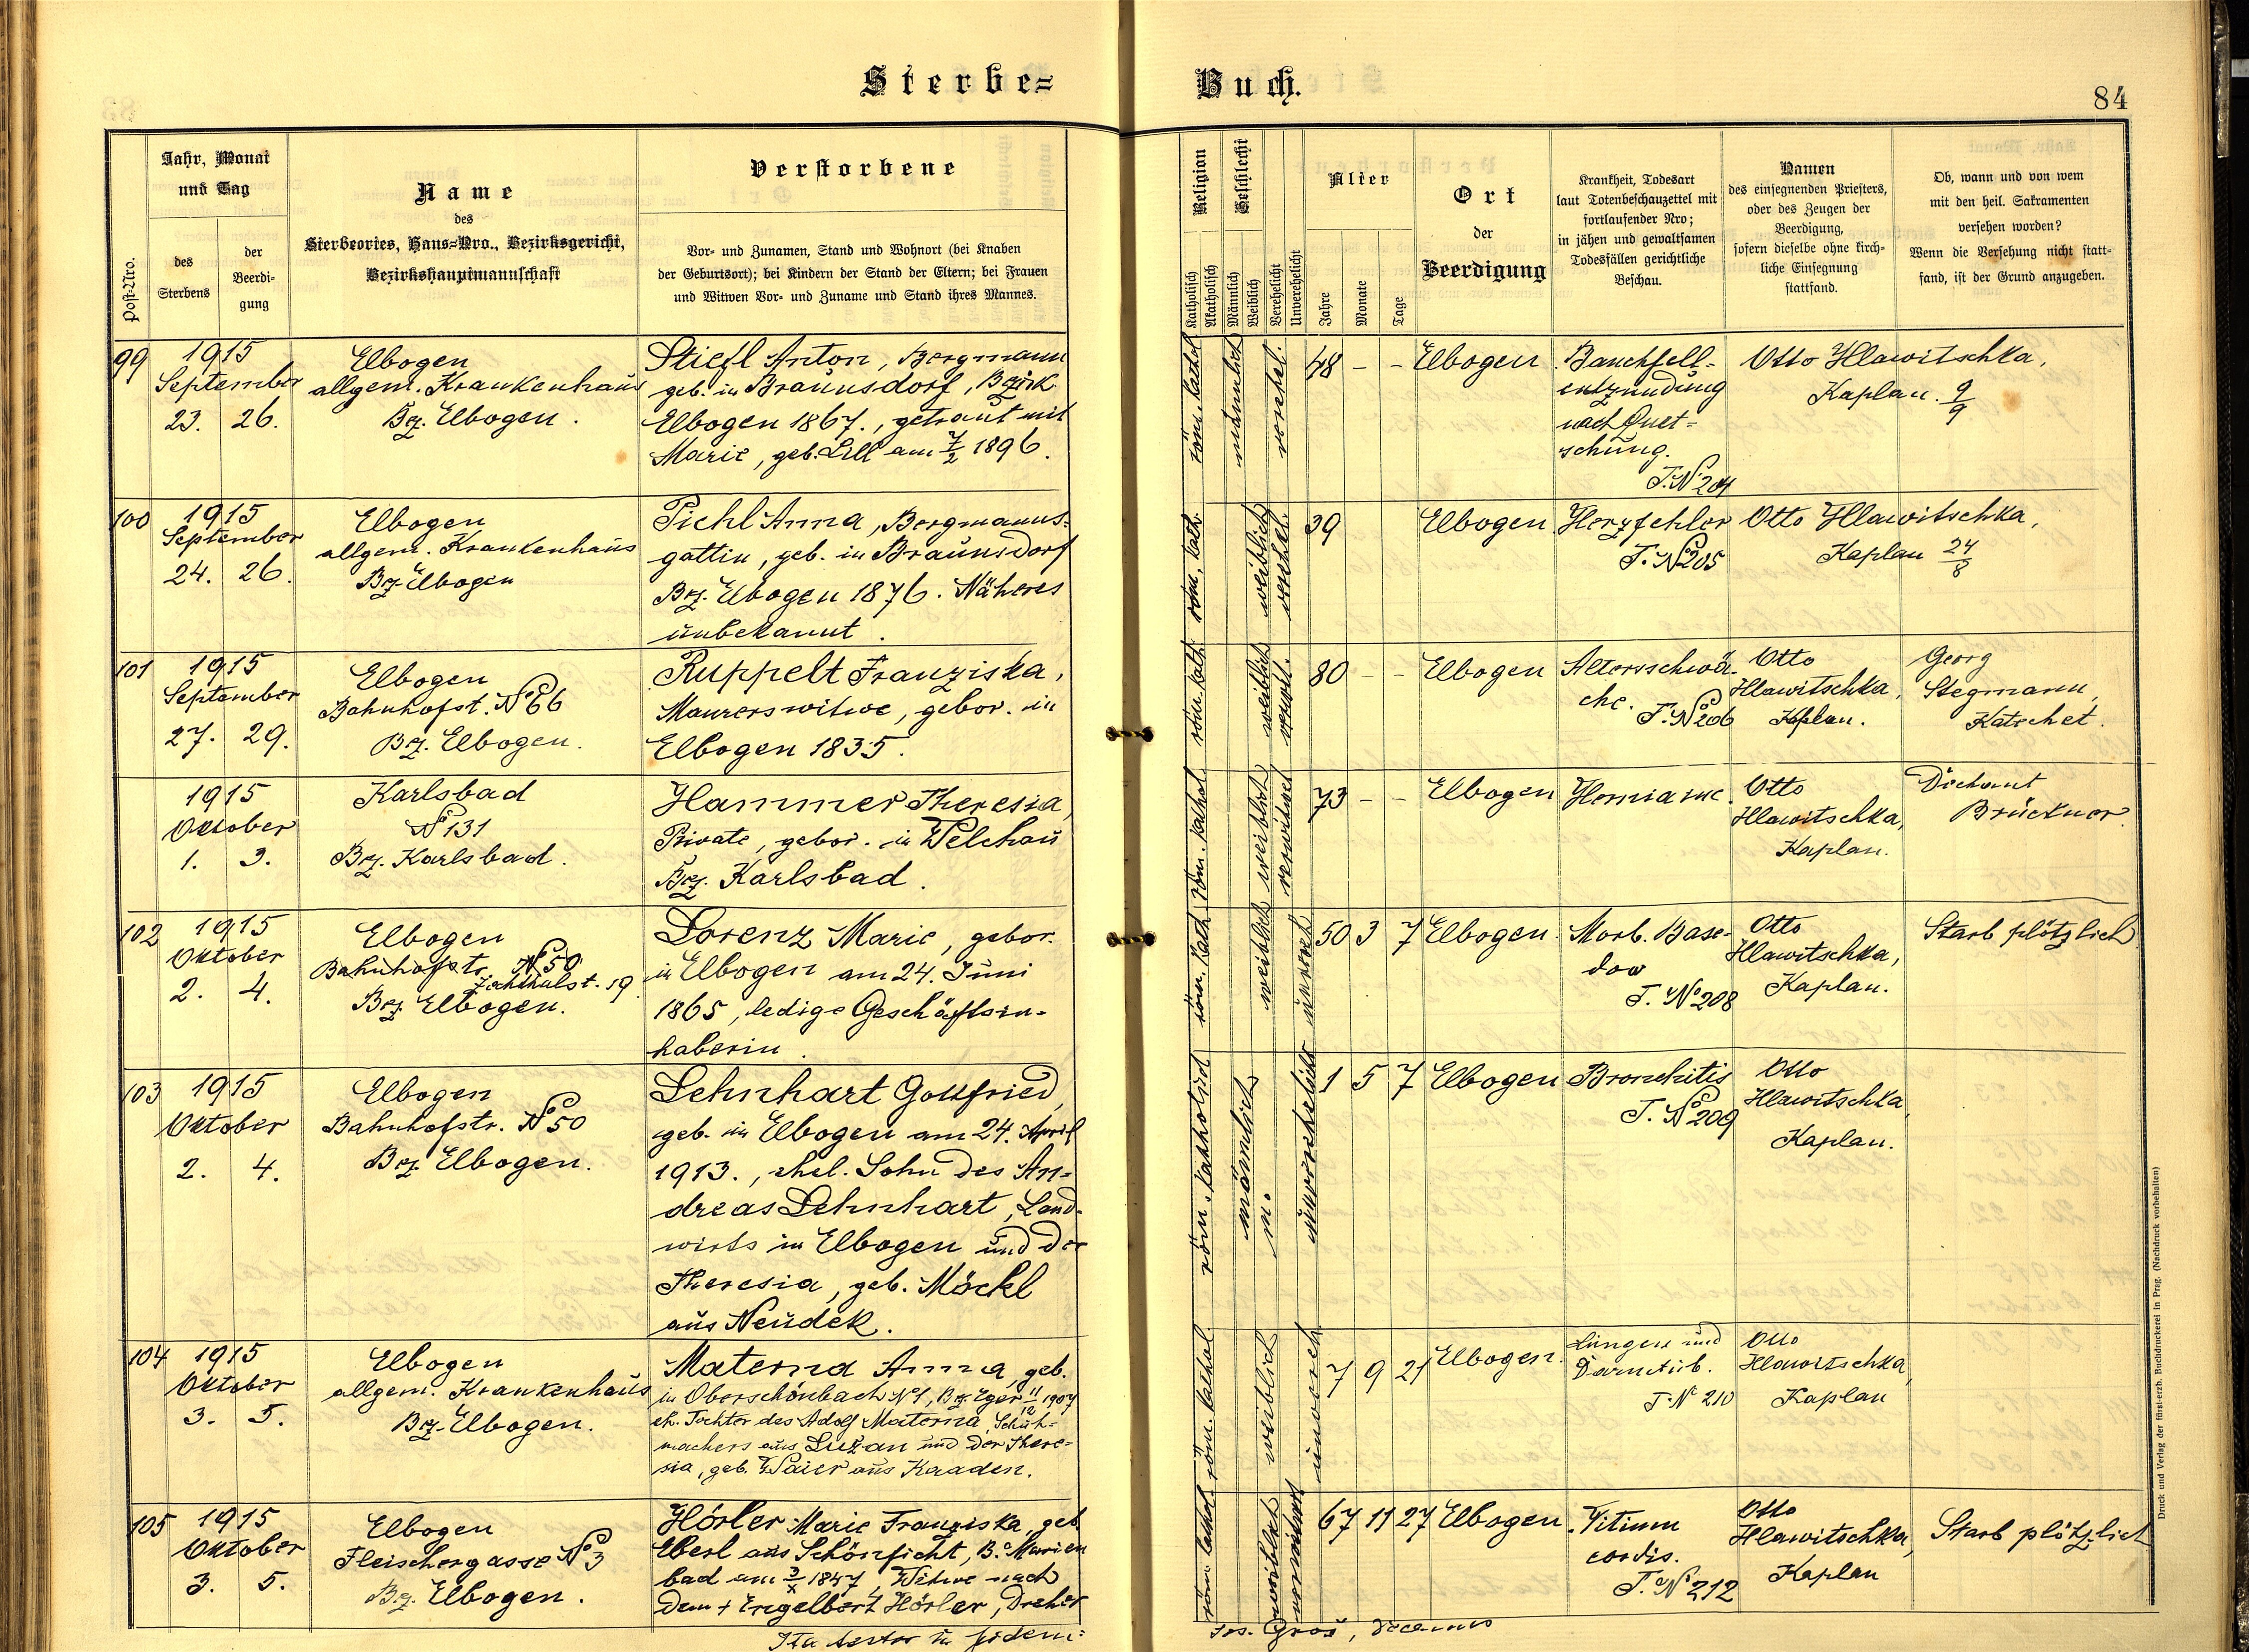 Sterbe=
Buch.
84
Post-Nro.
Jahr, Monat
und Tag
des
Sterbens
der
Beerdi-
gung
Name
des
Sterbeortes, Haus=Nro., Bezirksgericht,
Bezirkshauptmannschaft
Verstorbene
Vor- und Zunamen, Stand und Wohnort (bei Knaben
der Geburtsort); bei Kindern der Stand der Eltern; bei Frauen
und Witwen Vor- und Zuname und Stand ihres Mannes.
Religion
Katholisch
Akatholisch
Geschlecht
Männlich
Weiblich
Verehelicht
Unverehelicht
Alter
Jahre
Monate
Tage
Ort
der
Beerdigung
Krankheit, Todesart
laut Totenbeschauzettel mit
fortlaufender Nro;
in jähen und gewaltsamen
Todesfällen gerichtliche
Beschau.
Namen
des einsegnenden Priesters,
oder des Zeugen der
Beerdigung,
sofern dieselbe ohne kirch-
liche Einsegnung
stattfand.
Ob, wann und von wem
mit den heil. Sakramenten
versehen worden?
Wenn die Versehung nicht statt-
fand, ist der Grund anzugeben.
99
1915
September
23. 26.
Elbogen
allgem. Krankenhaus
Bz. Elbogen.
Stiefl Anton, Bergmann
geb. in Braunsdorf, Bezirk
Elbogen 1867., getraut mit
Marie, geb. Lill am 7/2 1896.
röm. kathol.
männlich
verehel.
48 – –
Elbogen
Bauchfell-
entzündung
nach Quet=
schung.
T. No 204
Otto Hlawitschka,
Kaplan. 9/9
100
1915
September
24. 26.
Elbogen
allgem. Krankenhaus
Bz. Elbogen
Pichl Anna, Bergmanns-
gattin, geb. in Braunsdorf
Bz. Elbogen 1876. Näheres
unbekannt.
röm. kath.
weiblich
verehel.
39
Elbogen
Herzfehler
T. No 205
Otto Hlawitschka,
Kaplan 24/8
101
1915
September
27. 29.
Elbogen
Bahnhofst. No 66
Bz. Elbogen.
Ruppelt Franziska,
Maurerswitwe, gebor. in
Elbogen 1835.
röm. kath.
weiblich
verwt.
80 – –
Elbogen
Altersschwä-
che.
T. No 206
Otto
Hlawitschka,
Kaplan.
Georg
Stegmann,
Katechet.
1915
Oktober
1. 3.
Karlsbad
No 131
Bz. Karlsbad.
Hammer Theresia,
Private, gebor. in Welchau
Bz. Karlsbad.
röm. kathol.
weiblich
verwitwet
73 – –
Elbogen
Hernia inc.
Otto
Hlawitschka,
Kaplan.
Dechant
Brückner
102
1915
Oktober
2. 4.
Elbogen
Bahnhofstr. No 50
19
Bz. Elbogen.
Lorenz Marie, gebor.
in Elbogen am 24. Juni
1865, ledige Geschäftsin-
haberin.
röm. kath.
weiblich
unvereh
50 3 7
Elbogen.
Morb. Base-
dow
T. No 208
Otto
Hlawitschka,
Kaplan.
Starb plötzlich
103
1915
Oktober
2. 4.
Elbogen
Bahnhofstr. No 50
Bz. Elbogen.
Lehnhart Gottfried,
geb. in Elbogen am 24. April
1913., ehel. Sohn des An-
dreas Lehnhart, Land-
wirts in Elbogen und der
Theresia, geb. Möckl
aus Neudek.
röm. katholisch
männlich
unverehelicht
1 5 7
Elbogen
Bronchitis
T. No 209
Otto
Hlawitschka,
Kaplan.
104
1915
Oktober
3. 5.
Elbogen
allgem. Krankenhaus
Bz. Elbogen.
Materna Anna, geb.
in Oberschönbach No 1, Bz. Eger 11/12 1907
eh. Tochter des Adolf Materna, Schuh-
machers aus Luzan und der There-
sia, geb. Waier aus Kaaden.
röm. kathol.
weiblich
unvereh
7 9 21
Elbogen.
Lungen und
Darmtub.
T. No 210
Otto
Hlawitschka,
Kaplan
105
1915
Oktober
3. 5.
Elbogen
Fleischergasse No 3
Bz. Elbogen.
Hörler Marie Franziska, geb
Eberl aus Schönficht, B. Marien
bad am 3/X 1847, Witwe nach
dem + Engelbert Hörler, Dreher
röm. kathol.
weiblich
verwitwet
67 11 27
Elbogen.
Vitium
cordis.
T. No 212
Otto
Hlawitschka,
Kaplan
Starb plötzlich
Ita testor in fidem:
Jos. Groß, Decanus
Druck und Verlag der fürst-erzb. Buchdruckerei in Prag. (Nachdruck vorbehalten)